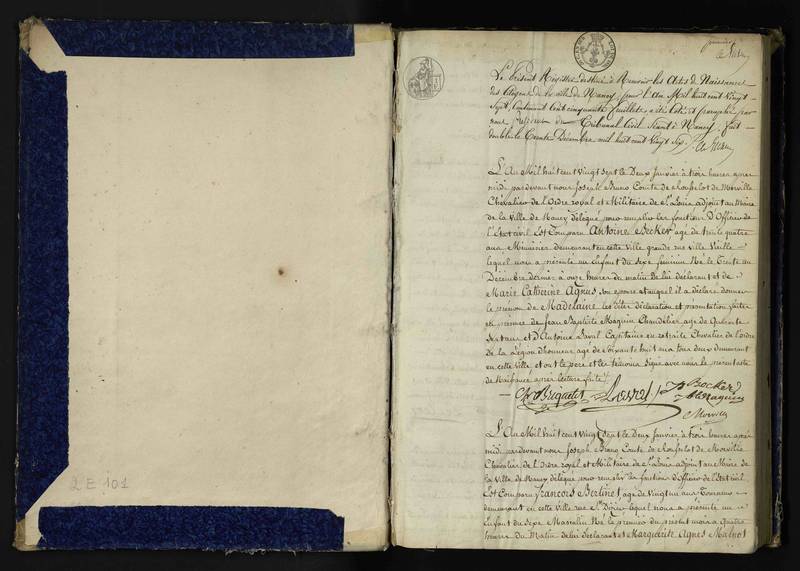 2 E 101
Le Présent Registre destiné à Recevoir les Actes de Naissances
des Citoyens de la ville de Nancy, pour l'An Mil huit cent Vingt
Sept, Contenant Cent cinquante feuillets, a été Coté et paraphé par
nous Président du Tribunal Civil Séant à Nancy, fait
double le Trente Décembre mil huit cent Vingt Six
L'An Mil huit cent vingt sept le Deux Janvier à trois heures après
midi pardevant nous Joseph Bruno Comte de Morville
Chevalier de l'Ordre royal et Militaire de St Louis adjoint au Maire
de la Ville de Nancy délégué pour remplir les fonctions d'Officier de
l'Etat civil Est Comparu Antoine Becker agé de trente quatre
ans Menuisier demeurant en cette Ville grande rue ville Vieille
lequel nous a présenté un Enfant du sexe féminin Né le Trente un
Décembre dernier à onze heures du matin de lui déclarant et de
Marie Catherine Agnus, son épouse et auquel il a déclaré donner
le prénom de Madelaine les dites déclaration et présentation faites
en présence de Jean Baptiste Maguin Chandelier agé de Quarante
Sept ans et d'Antoine Laval Capitaine en retraite Chevalier de l'ordre
de la Légion d'honneur agé de Soixante huit ans tous deux demeurant
en cette Ville et ont le père et les témoins signé avec nous le présent acte
de Naissance après lecture faite
Becker
Maguin
Morville
L'An Mil huit cent vingt sept le Deux Janvier à trois heures après
midi pardevant nous Joseph Bruno Comte de Morville
Chevalier de l'Ordre royal et Militaire de St Louis adjoint au Maire de
la Ville de Nancy délégué pour remplir les fonctions d'Officier de l'Etat civil
Est Comparu francois Bertinet agé de Vingt neuf ans Tonneau
demeurant en cette Ville rue St Dizier lequel nous a présenté un
Enfant du Sexe Masculin Né le premier du présent mois à Quatre
heures du Matin de lui déclarant et Marguerite Agnès Mainot